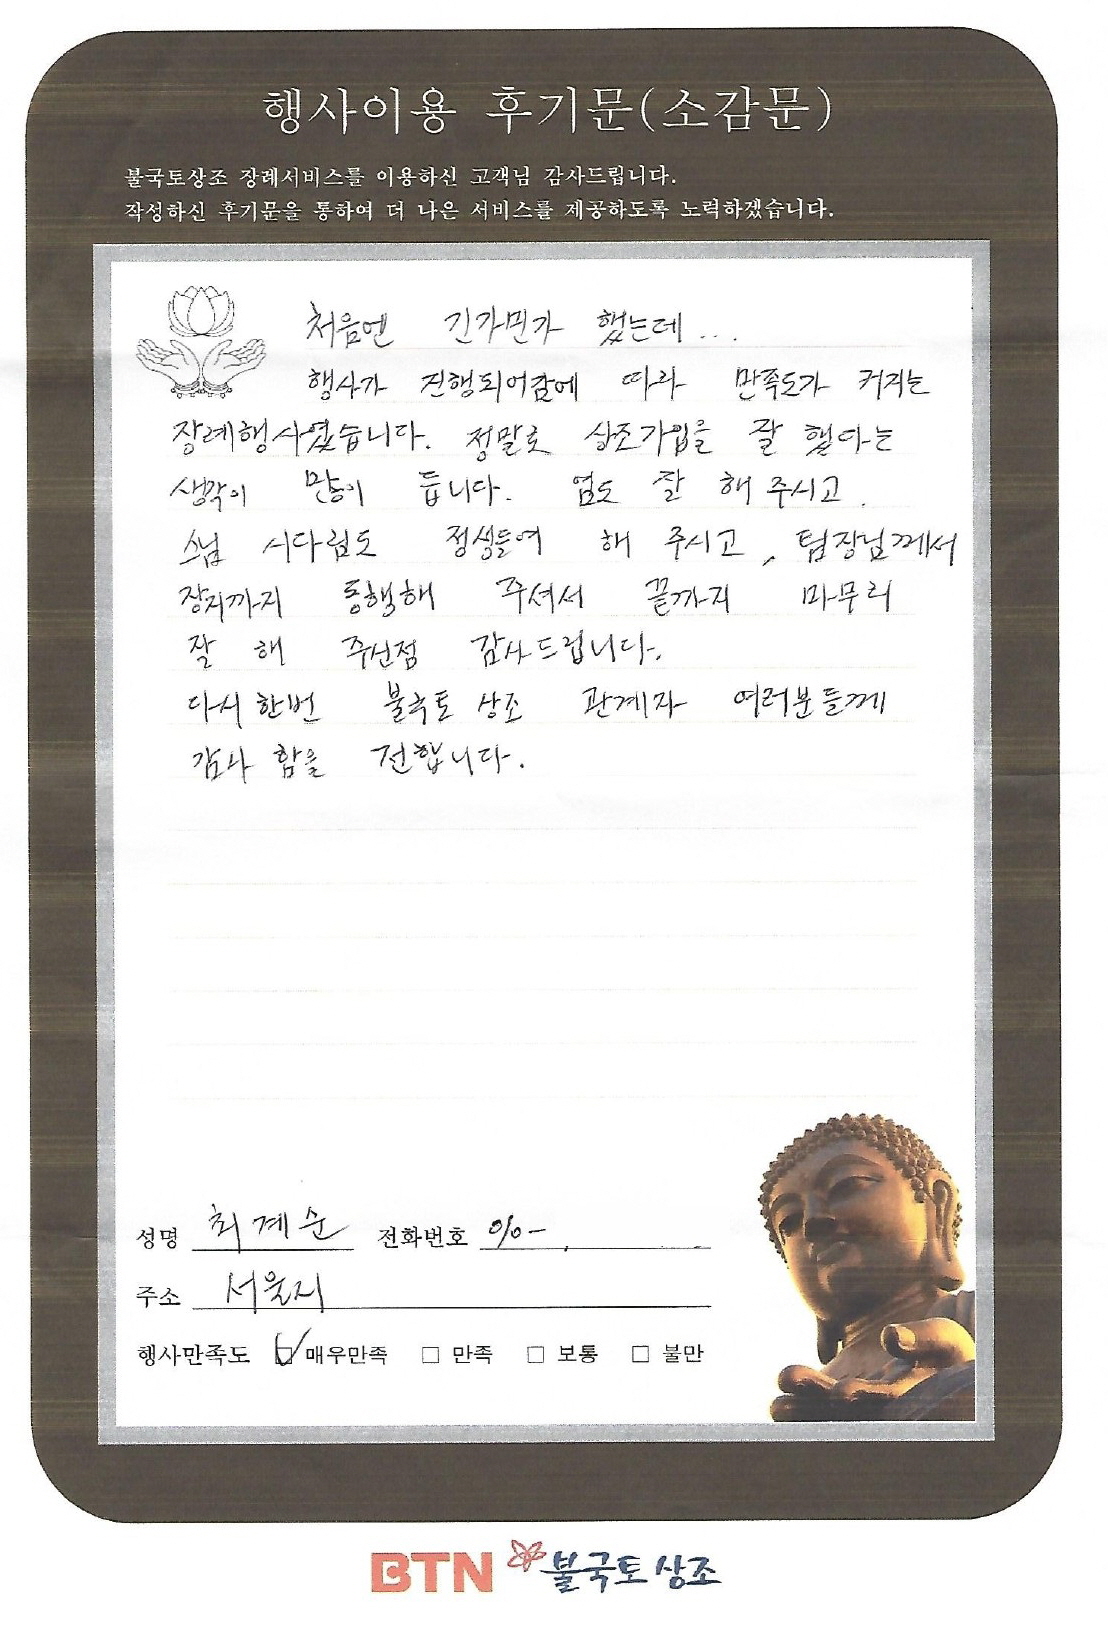 행사이용 후기문(소감문)
불국토상조 장례서비스를 이용하신 고객님 감사드립니다.
작성하신 후기문을 통하여 더 나은 서비스를 제공하도록 노력하겠습니다.
처음엔 긴가민가 했는데...
행사가 진행되어감에 따라 만족도가 커지는
장례행사였습니다. 정말로 상조가입을 잘 했다는
생각이 많이 듭니다. 염도 잘 해 주시고.
스님 시다림도 정성들여 해 주시고, 팀장님께서
장지까지 동행해 주셔서 끝까지 마무리
잘 해 주신점 감사드립니다.
다시한번 불국토 상조 관계자 여러분들께
감사 함을 전합니다.
성명 최계순 전화번호 010-
주소 서울시
행사만족도 ☑ 매우만족 □ 만족 □ 보통 □ 불만
BTN 불국토상조